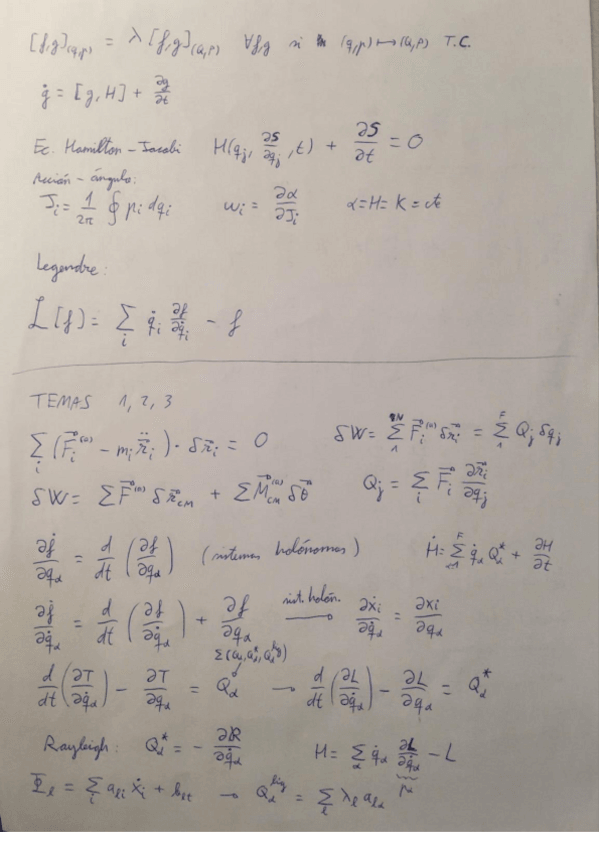 [f,g]_(q,p) = λ [f,g]_(Q,P) ∀f,g si (q,p) ↦ (Q,P) T.C.
ġ = [g,H] + ∂g/∂t
Ec. Hamilton-Jacobi H(q_j, ∂S/∂q_j, t) + ∂S/∂t = 0
Acción-ángulo:
J_i = 1/2π ∮ p_i dq_i ω_i = ∂α/∂J_i α = H = K = cte
Legendre:
L[f] = Σ_i q̇_i ∂f/∂q̇_i - f
TEMAS 1, 2, 3
Σ_i (F⃗_i^(a) - m_i r⃗̈_i) · δr⃗_i = 0 δW = Σ_1^N F⃗_i^(a) δr⃗_i = Σ_1^F Q_j δq_j
δW = Σ F⃗^(a) δr⃗_CM + Σ M⃗_CM^(a) δθ⃗ Q_j = Σ_i F⃗_i ∂r⃗_i/∂q_j
∂ḟ/∂q_α = d/dt (∂f/∂q_α) (sistemas holónomos) Ḣ = Σ^F q̇_α Q_α^* + ∂H/∂t
∂ḟ/∂q̇_α = d/dt (∂f/∂q̇_α) + ∂f/∂q_α → sist. holón. ∂ẋ_i/∂q̇_α = ∂x_i/∂q_α
Σ(Q_α, Q_α^*, Q_α^lig)
d/dt (∂T/∂q̇_α) - ∂T/∂q_α = Q_α → d/dt (∂L/∂q̇_α) - ∂L/∂q_α = Q_α^*
Rayleigh: Q_α^* = - ∂R/∂q̇_α H = Σ_α q̇_α ∂L/∂q̇_α - L
p_α
Φ_l = Σ_i a_li ẋ_i + b_lt → Q_α^lig = Σ_l λ_l a_lα